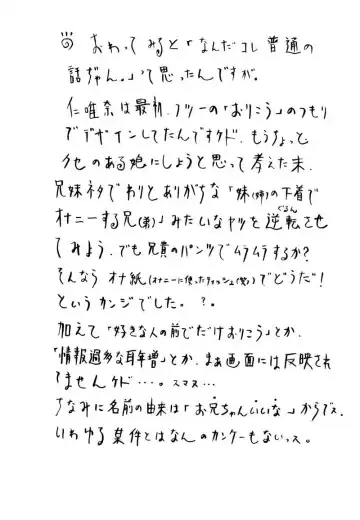 おわってみると「なんだコレ普通の
話ぢゃん。」って思ったんですが。
仁唯奈は最初、フツーの「おりこう」のつもり
でデザインしてたんですケド、もうちょっと
クセのある娘にしようと思って考えた末、
兄妹ネタでわりとありがちな「妹(姉)の下着で
オナニーする兄(弟)」みたいなヤツを逆転させ
ぐるん
てみよう、でも兄貴のパンツでムラムラするか?
そんなら オナ紙(オナニーに使ったティッシュ(笑))でどうだ!
というカンジでした。?。
加えて「好きな人の前でだけおりこう」とか、
「情報過多な耳年増」とか、まぁ画面には反映され
てませんケド…。スマヌ…
ちなみに名前の由来は「お兄ちゃんいいな」からでス、
いわゆる某件とはなんのカンケーもないっス。